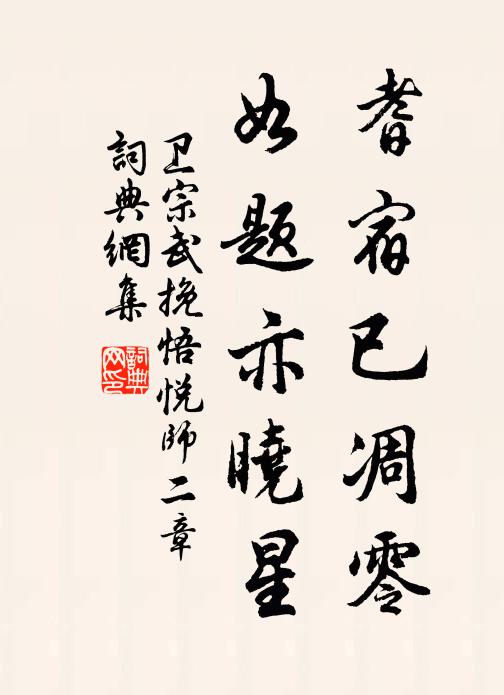 耆宿已凋零
如题亦曉星
卫宗武挽悟悦師二章
詞典網集
詞典网印